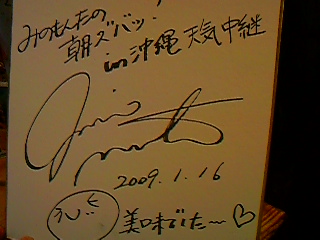 みのもんたの
朝ズバッ!
in沖縄 天気中継
2009.1.16
美味でした〜♡